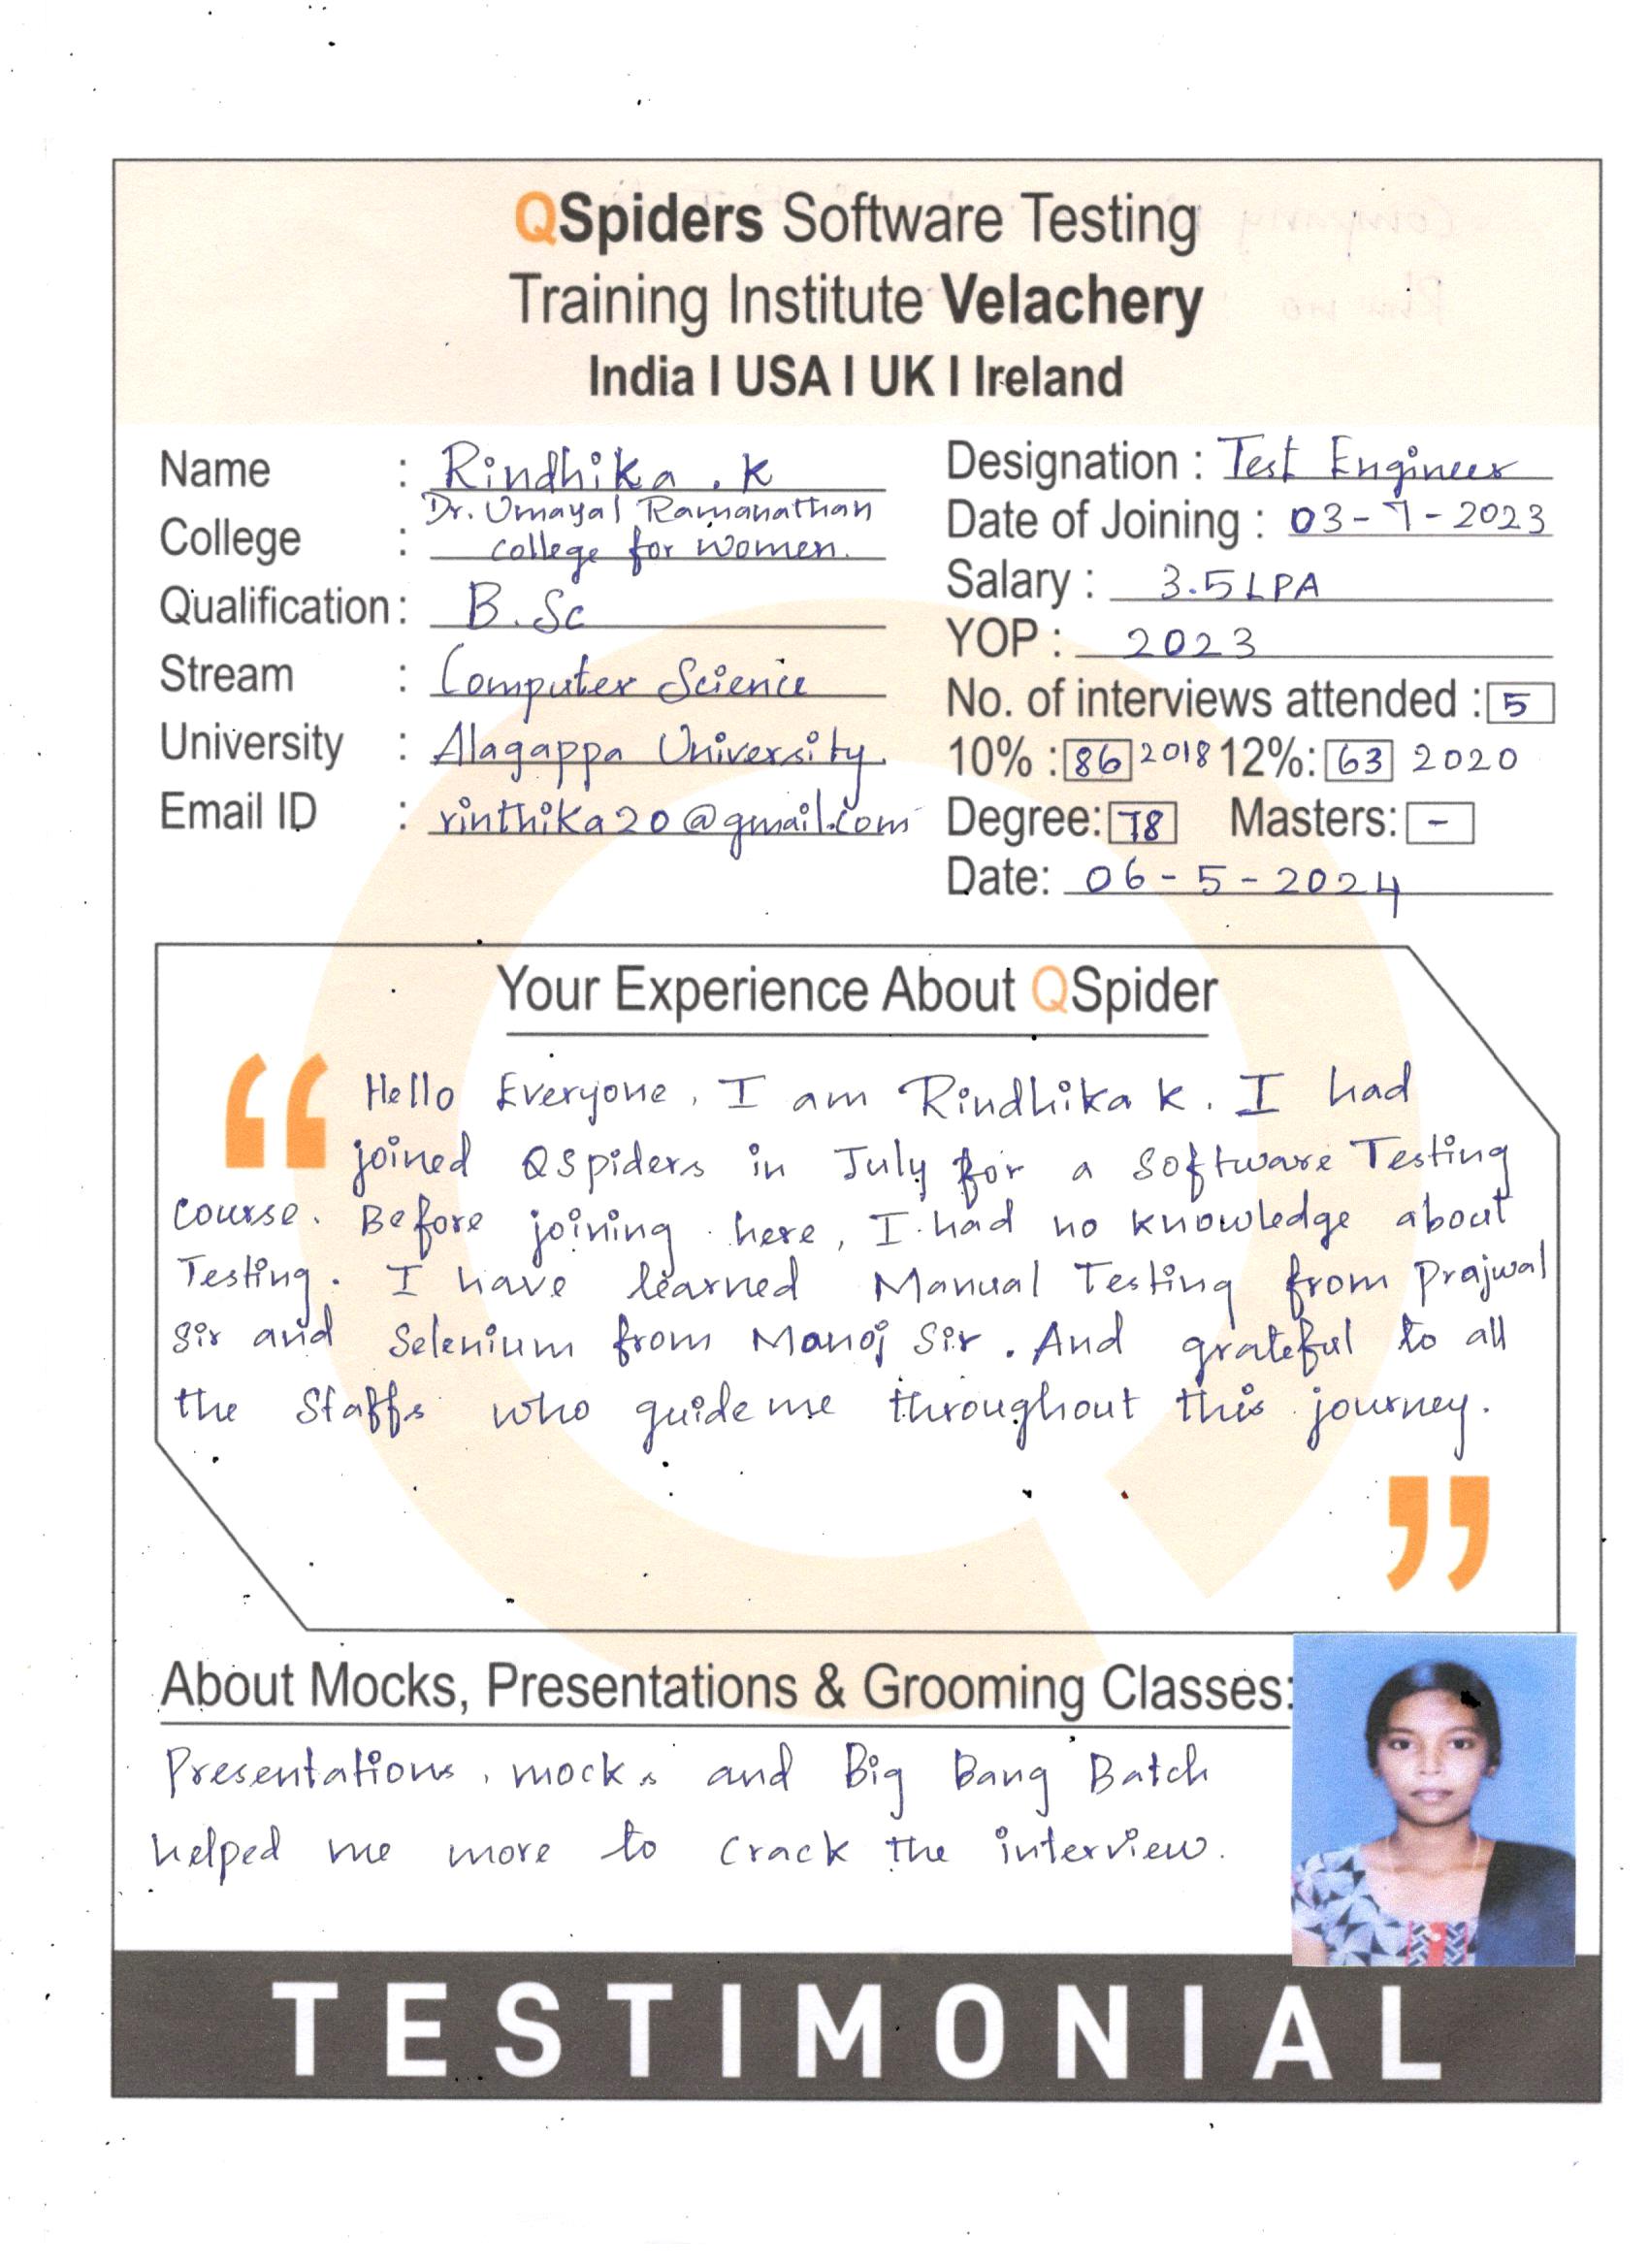 QSpiders Software Testing
Training Institute Velachery
India I USA I UK I Ireland
Name : Rindhika . K
College : Dr. Umayal Ramanathan
college for women.
Qualification : B.Sc
Stream : Computer Science
University : Alagappa University.
Email ID : rinthika20@gmail.com
Designation : Test Engineer
Date of Joining : 03-7-2023
Salary : 3.5LPA
YOP : 2023
No. of interviews attended : 5
10% : 86 2018 12%: 63 2020
Degree: 78 Masters: -
Date: 06-5-2024
Your Experience About QSpider
“ Hello Everyone, I am Rindhika K. I had
joined QSpiders in July for a Software Testing
course. Before joining here, I had no knowledge about
Testing. I have learned Manual Testing from Prajwal
Sir and Selenium from Manoj Sir. And grateful to all
the Staffs who guide me throughout this journey.
”
About Mocks, Presentations & Grooming Classes:
Presentations, mocks and Big Bang Batch
helped me more to crack the interview.
TESTIMONIAL